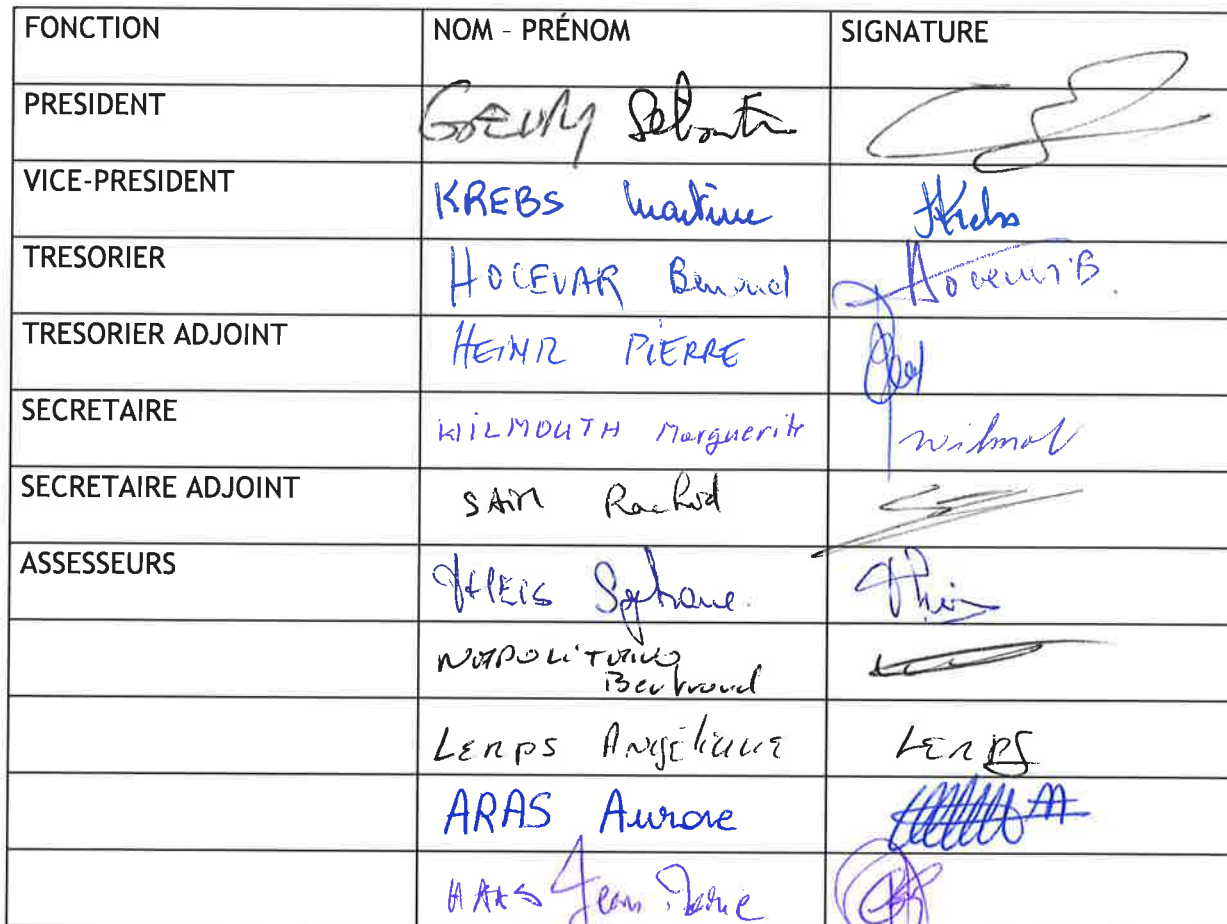 FONCTION NOM - PRÉNOM SIGNATURE
PRESIDENT GOEURY
VICE-PRESIDENT KREBS Martine Krebs
TRESORIER HOCEVAR Bernard
TRESORIER ADJOINT PIERRE
SECRETAIRE WILMOUTH Marguerite
SECRETAIRE ADJOINT Rachid
ASSESSEURS THEIS Stephane
NAPOLITANO
Bertrand
LERPS Angélique LERPS
ARAS Aurore
HAAS Jean